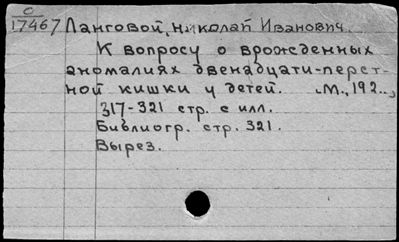 О
17467
Ланговой, Николай Иванович.
К вопросу о врожденных
аномалиях двенадцати-перст-
ной кишки у детей. М., 192..,
317-321 стр. с илл.
Библиогр. стр. 321.
Вырез.